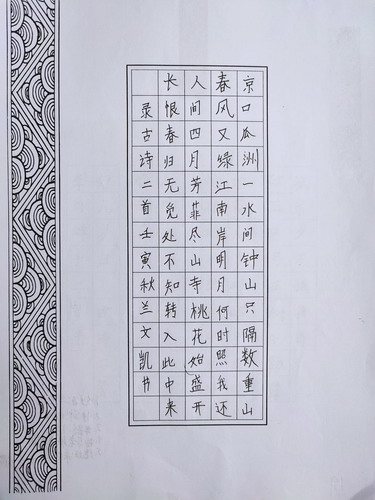 京口瓜洲一水间钟山只隔数重山
春风又绿江南岸明月何时照我还
人间四月芳菲尽山寺桃花始盛开
长恨春归无觅处不知转入此中来
录古诗二首壬寅秋兰文凯书